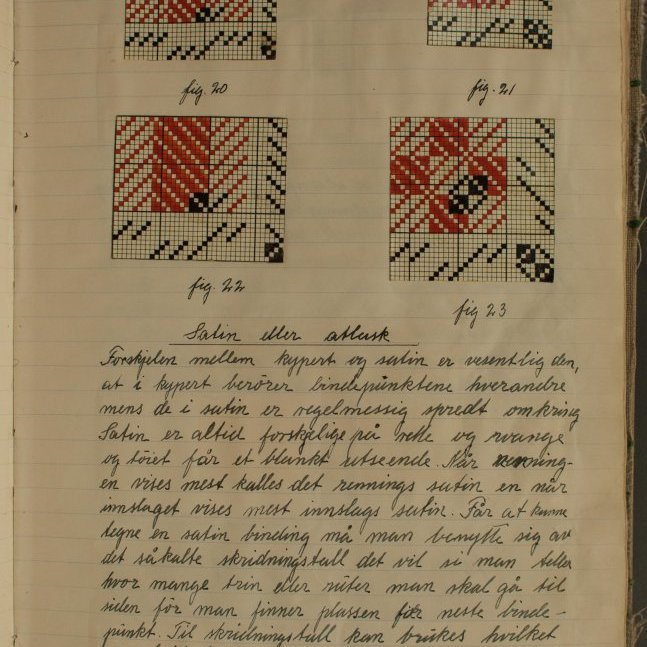 fig. 20
fig. 21
fig. 22
fig 23
Satin eller atlask
Forskjelen mellem kypert og satin er vesentlig den,
at i kypert berörer bindepunktene hverandre
mens de i satin er regelmessig spredt omkring
Satin er altid forskjelige på rette og vrange
og töiet får et blankt utseende. Når renning-
en vises mest kalles det rennings satin en når
innslaget vises mest innslags satin. Får at kunne
tegne en satin binding må man benytte sig av
det såkalte skridningstall det vil si man teller
hvor mange trin eller ruter man skal gå til
siden för man finner plassen for neste binde-
punkt. Til skridningstall kan brukes hvilket